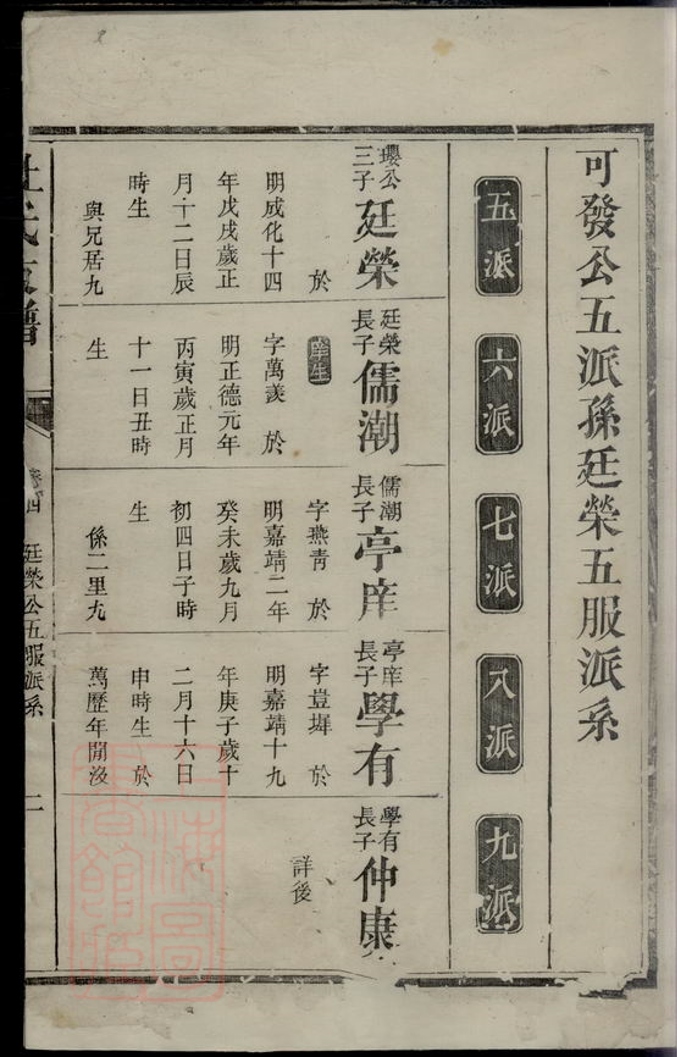 可發公五派孫廷榮五服派系
五派
六派
七派
八派
九派
瓔公三子廷榮
於
明成化十四
年戊戌歲正
月十二日辰
時生
與兄居九
廷榮長子儒潮
庠生
字萬羨 於
明正德元年
丙寅歲正月
十一日丑時
生
儒潮長子亭庠
字燕靑 於
明嘉靖二年
癸未歲九月
初四日子時
生
係二里九
亭庠長子學有
字荳墀 於
明嘉靖十九
年庚子歲十
二月十六日
申時生 於
萬歷年閒沒
學有長子仲康
詳後
氏支譜
卷四
廷榮公五服派系
二
上海圖書館藏